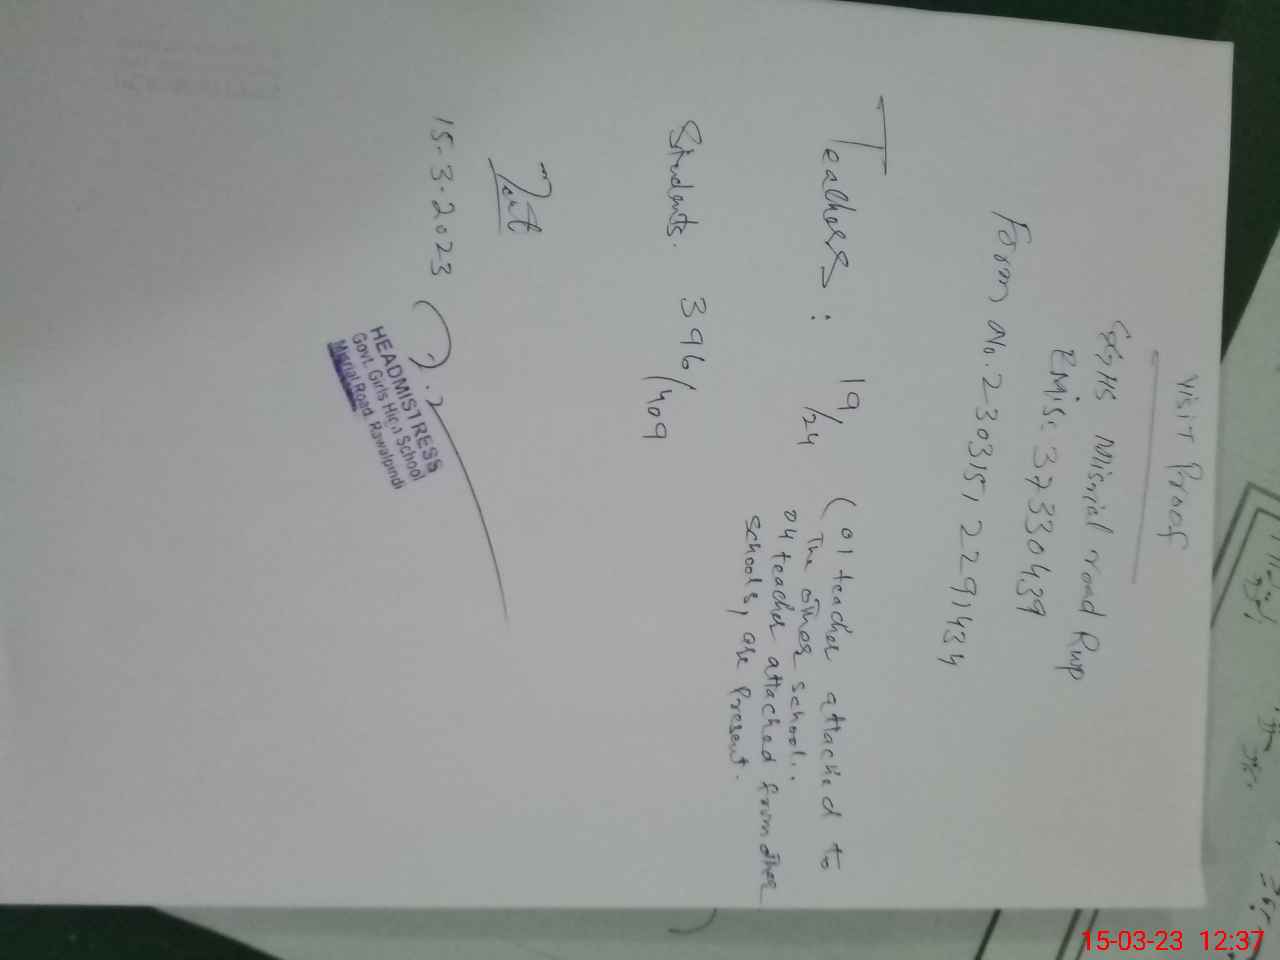 Visit Proof
GGHS Misrial road Rwp
EMIS: 37330439
Form No. 2303151 2291434
Teachers : 19/24 ( 01 teacher attached to
the other school..
04 teacher attached from other
schools, are Present.
Students. 396/409
15.3.2023
HEADMISTRESS
Govt. Girls High School
Misrial Road Rawalpindi
15-03-23 12:37